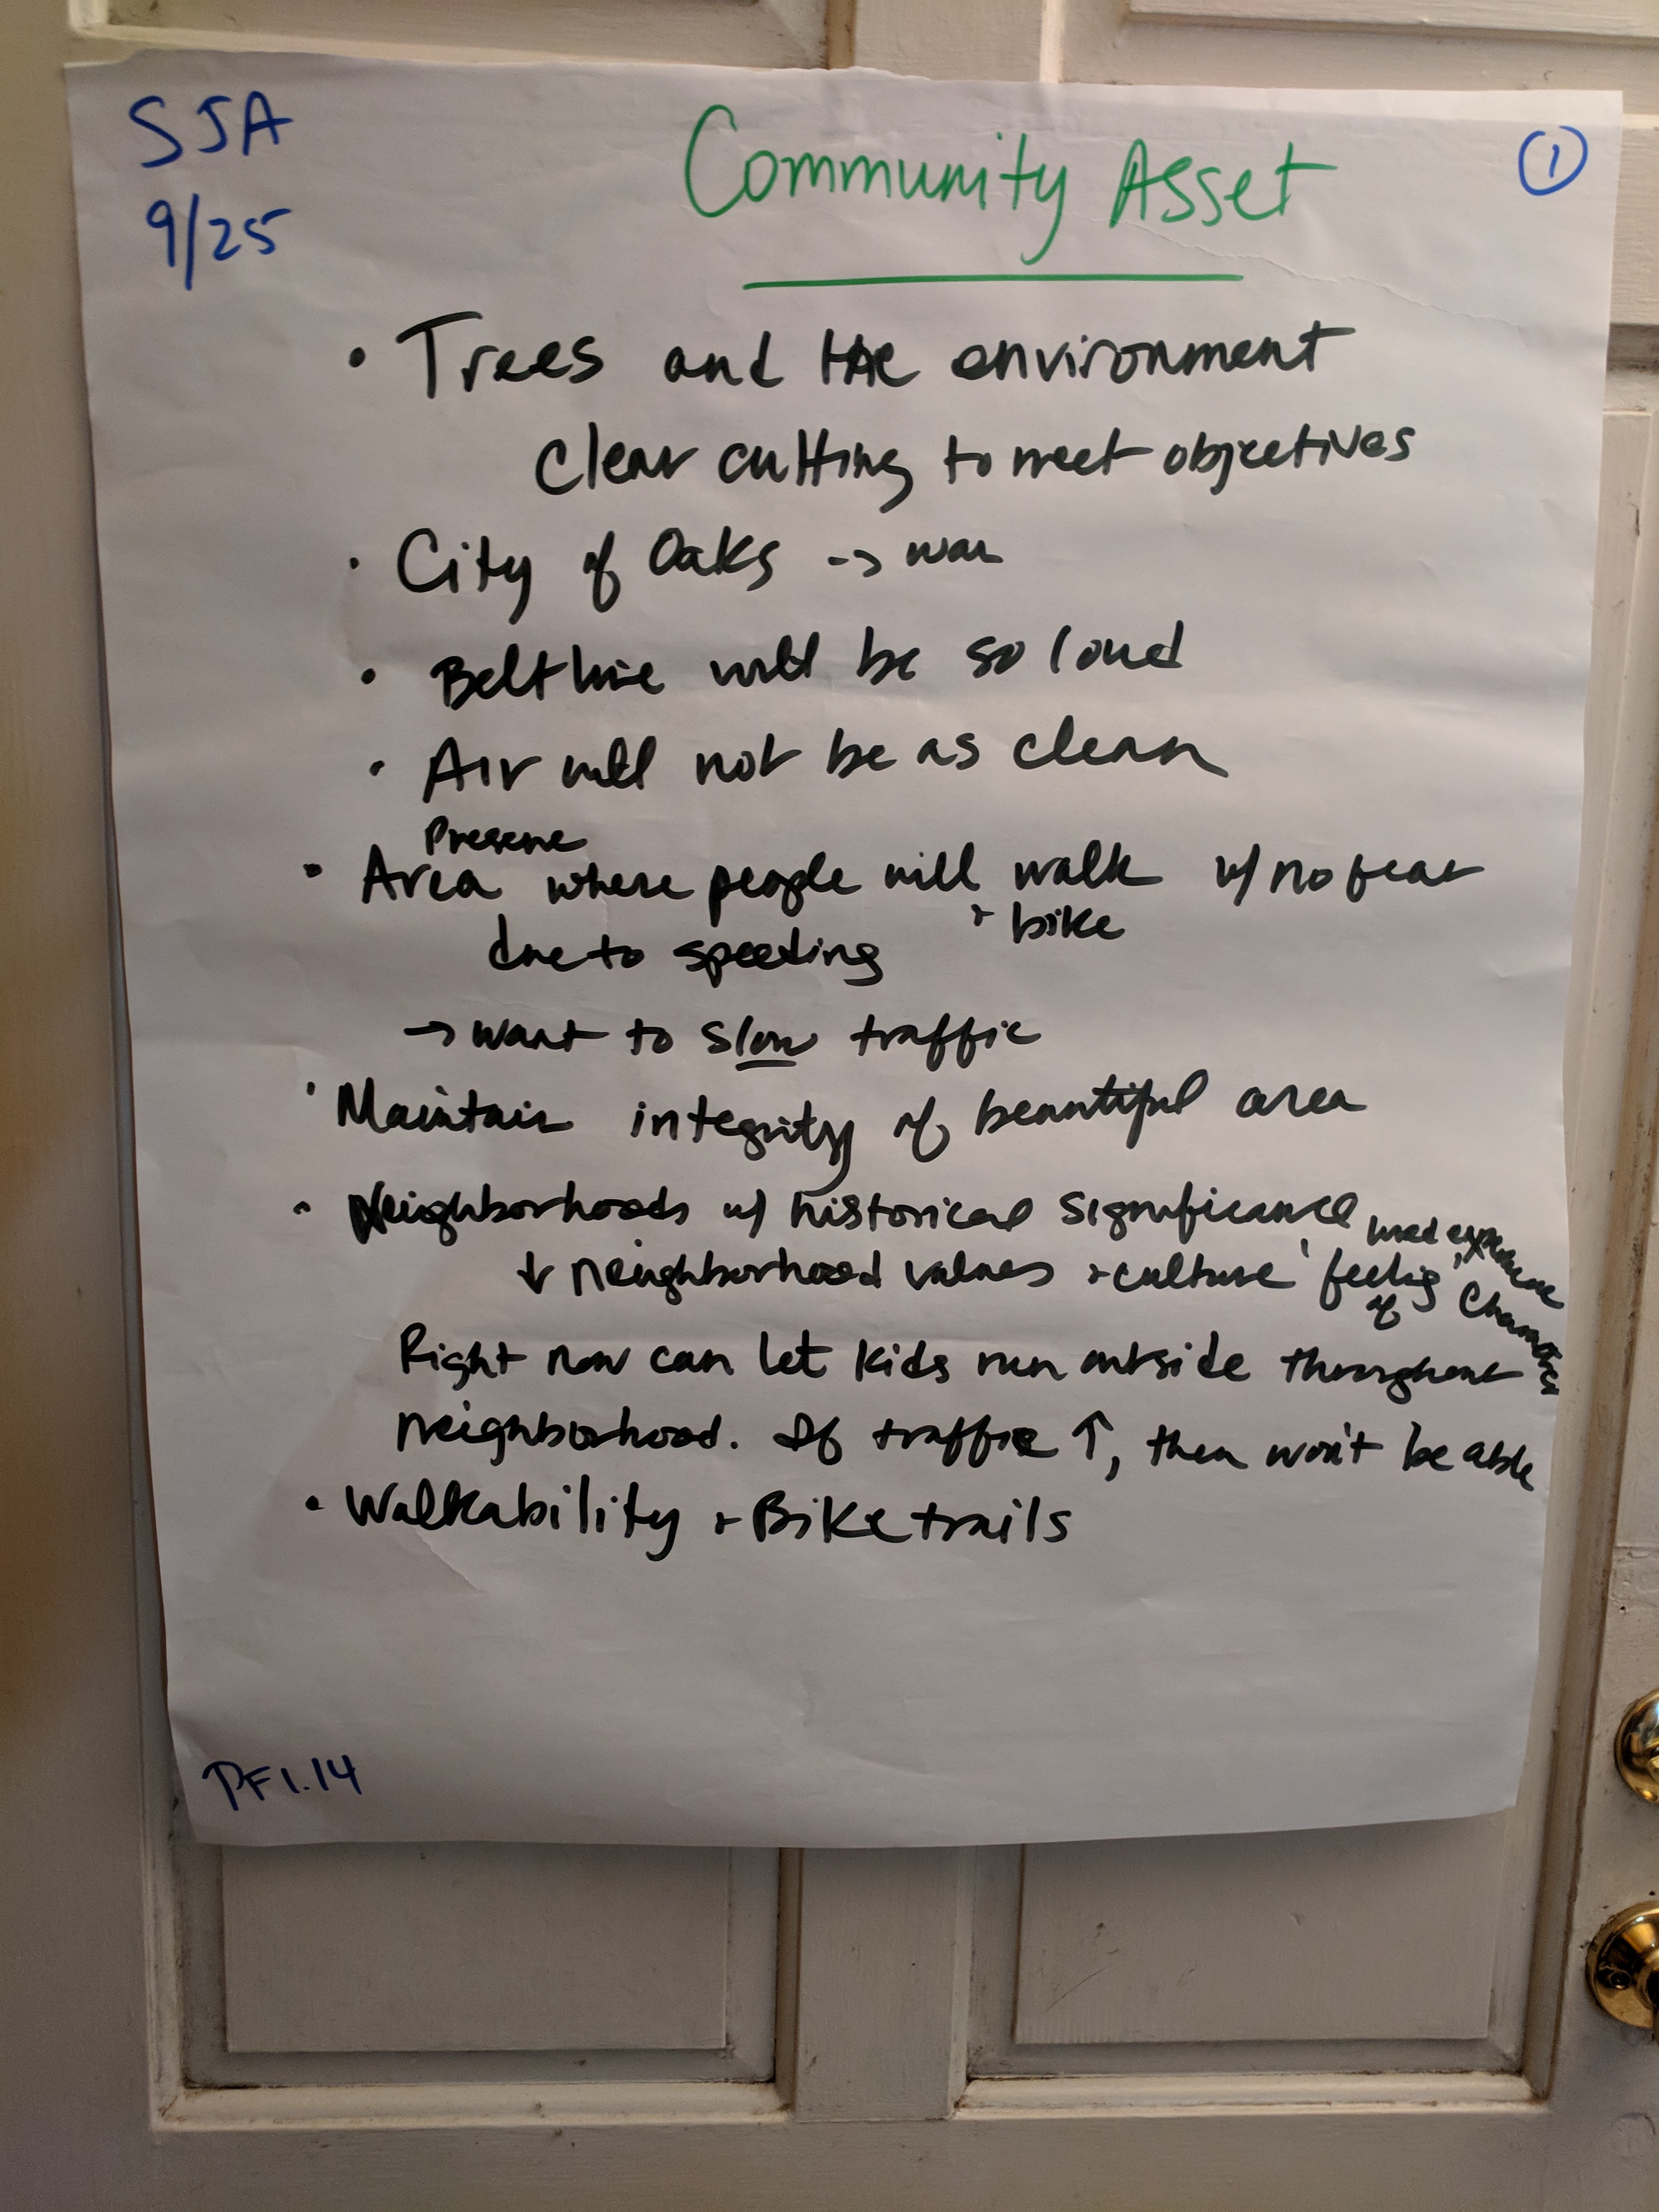 SJA
9/25
Community Asset
1
• Trees and the environment
Clear cutting to meet objectives
• City of Oaks ->
• Beltline will be so loud
• Air will not be as clean
Preserve
• Area where people will walk w/ no fear
+ bike
due to speeding
→ want to slow traffic
• Maintain integrity of beautiful area
• Neighborhoods w/ historical significance
↓ neighborhood values + culture 'feeling'
of
Right now can let kids run outside throughout
neighborhood. If traffic ↑, then won't be able
• Walkability + Bike trails
PF1.14